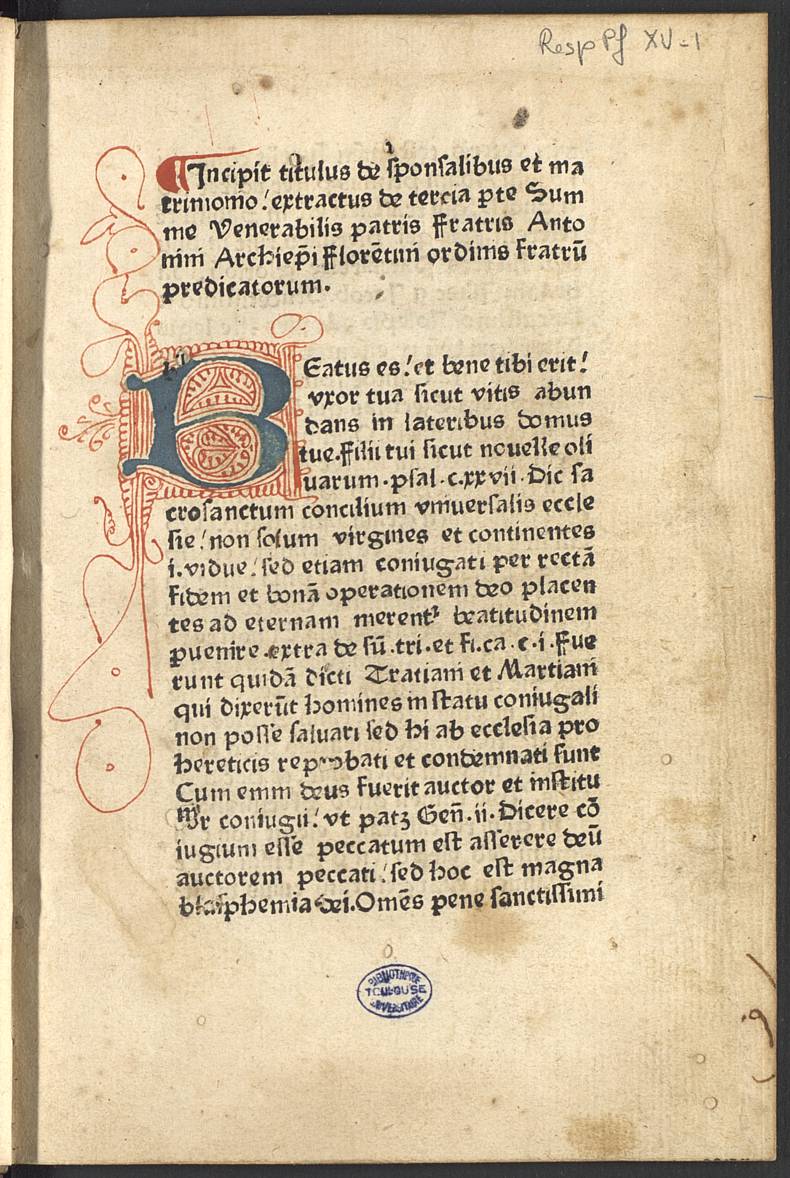 Resp Pf XV-1
Incipit titulus de sponsalibus et ma
trimonio! extractus de tercia ꝑte Sum
me Venerabilis patris Fratris Anto
nini Archiep̄i Florētini ordinis fratrū
predicatorum.
BEatus es! et bene tibi erit!
vxor tua sicut vitis abun
dans in lateribus domus
tue. Filii tui sicut nouelle oli
uarum. psal. c.xxvii. Dic sa
crosanctum concilium vniuersalis eccle
sie! non solum virgines et continentes
i. vidue! sed etiam coniugati per rectā
fidem et bonā operationem deo placen
tes ad eternam merentᷣ beatitudinem
ꝑuenire. extra de sū. tri. et fi. ca. c. i. Fue
runt quidā dicti Tratiani et Martiani
qui dixerūt homines in statu coniugali
non posse saluari sed hi ab ecclesia pro
hereticis reprobati et condemnati sunt
Cum enim deus fuerit auctor et institu
tor coniugii! vt patꝫ Geñ. ii. Dicere cō
iugium esse peccatum est asserere deū
auctorem peccati! sed hoc est magna
blasphemia dei. Omēs pene sanctissimi
BIBLIOTHÈQUE
TOULOUSE
UNIVERSITAIRE